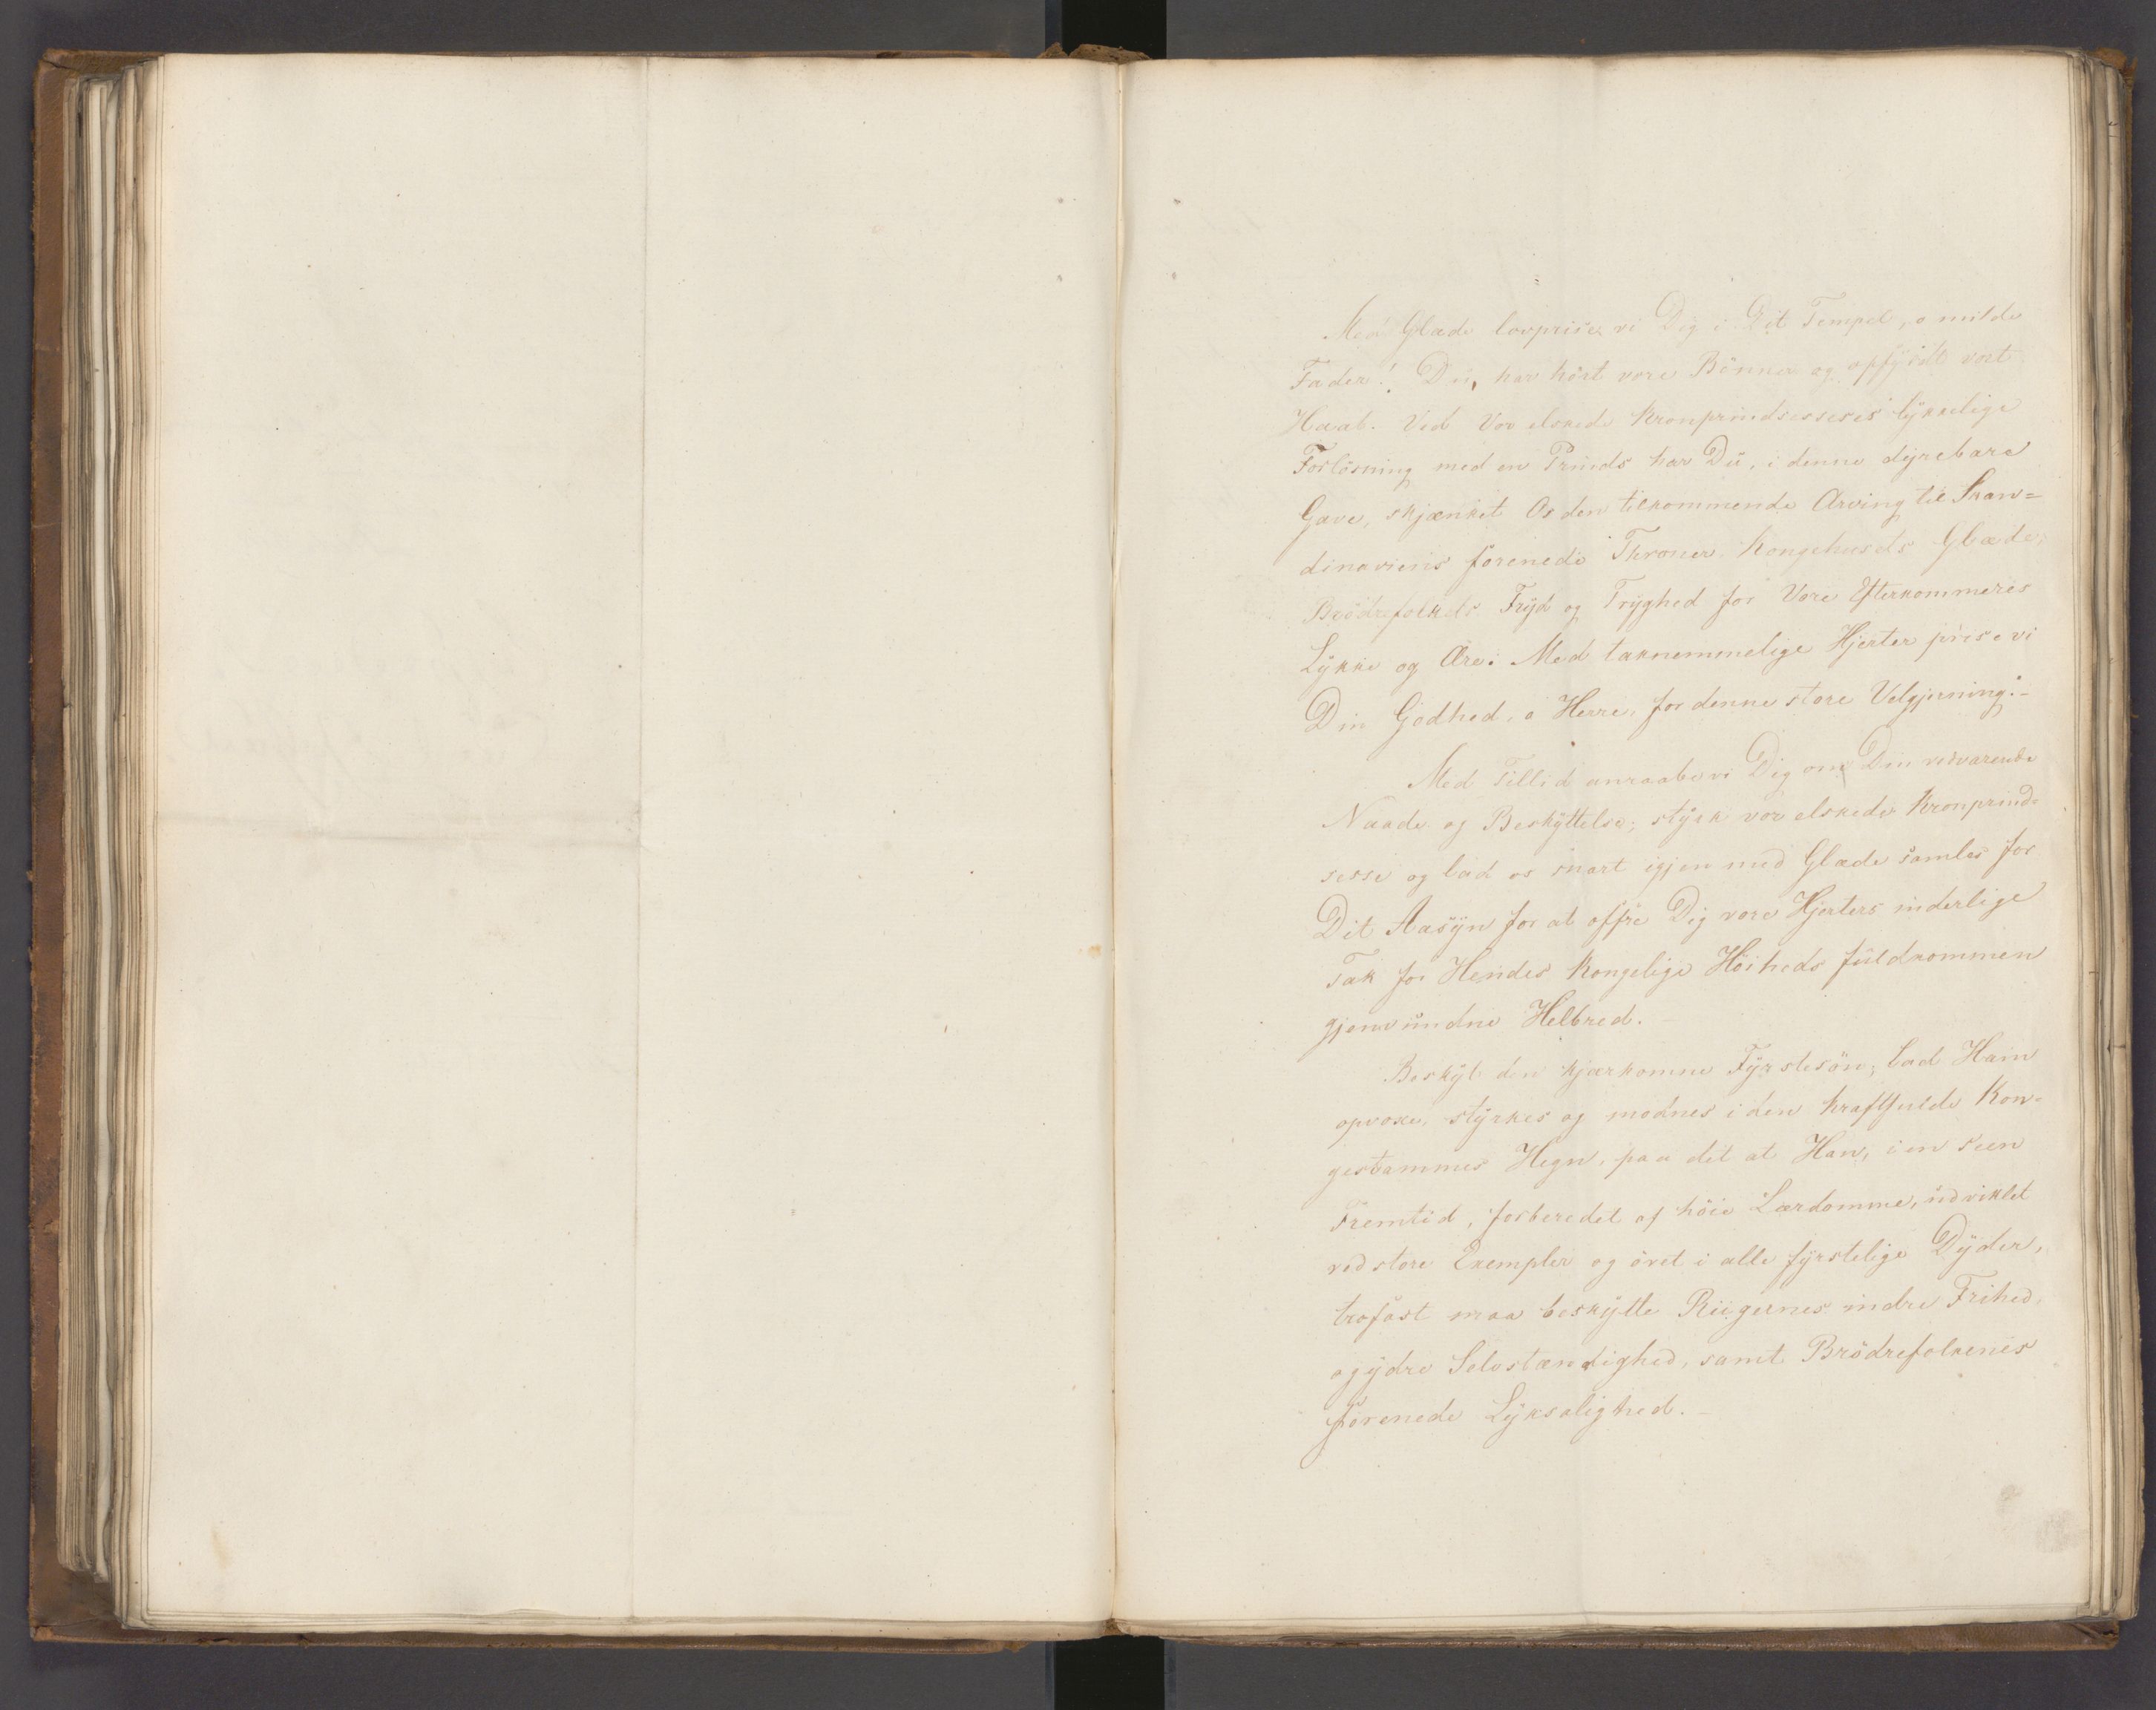 Med Glæde lovprise vi Dig i Dit Tempel, o milde
Fader! Du, har hört vore Bönner og opfÿldt vort
Haab. Ved Vor elskede Kronprindsesses lÿkkelige
Forlösning med en Prinds har Du, i denne dÿrebare
Gave, skjænket Os den tilkommende Arving til Skan=
dinaviens forenede Throner, Kongehusets Glæde,
Brödrefolkets Frÿd og Trÿghed for Vore Efterkommeres
Lÿkke og Ære. Med taknemmelige Hjerter prise vi
Din Godhed, o Herre, for denne store Velgjerning. –
Med Tillid anraabe vi Dig om Din vedvarende
Naade og Beskÿttelse; stÿrk vor elskede Kronprind=
sesse og lad os snart igjen med Glæde samles for
Dit Aasÿn for at offre Dig vore Hjerters inderlige
Tak for Hendes Kongelige Höiheds fuldkommen
gjenvundne Helbred. –
Beskÿt den kjærkomne Fÿrstesön; lad Ham
opvoxe, stÿrkes og modnes i den kraftfulde Kon=
gestammes Hegn, paa det at Han, i en seen
Fremtid, forberedet af höie Lærdomme, udviklet
ved store Exempler og övet i alle fÿrstelige Dÿder,
trofast maa beskÿtte Riigernes indre Frihed,
og ÿdre Selvstændighed, samt Brödrefolkenes
forenede Lÿksalighed. –